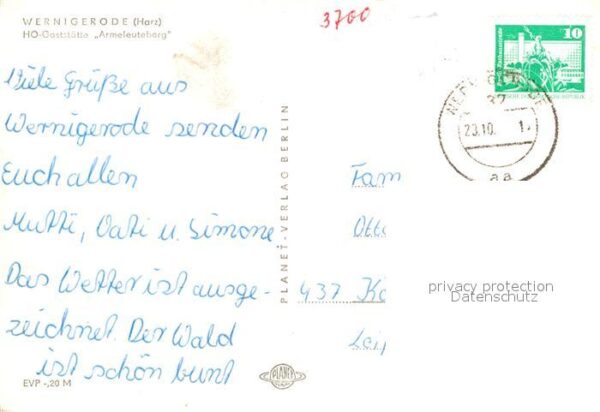 WERNIGERODE (Harz)
HO-Gaststätte „Armeleuteberg"
3700
10
Viele Grüße aus
Wernigerode senden
Euch allen
Mutti, Vati u. Simone.
Das Wetter ist ausge-
zeichnet. Der Wald
ist schön bunt
EVP -,20 M
PLANET-VERLAG BERLIN
PLANET
Fam
Otto
437 Kö
Leip
23.10.
aa
privacy protection
Datenschutz